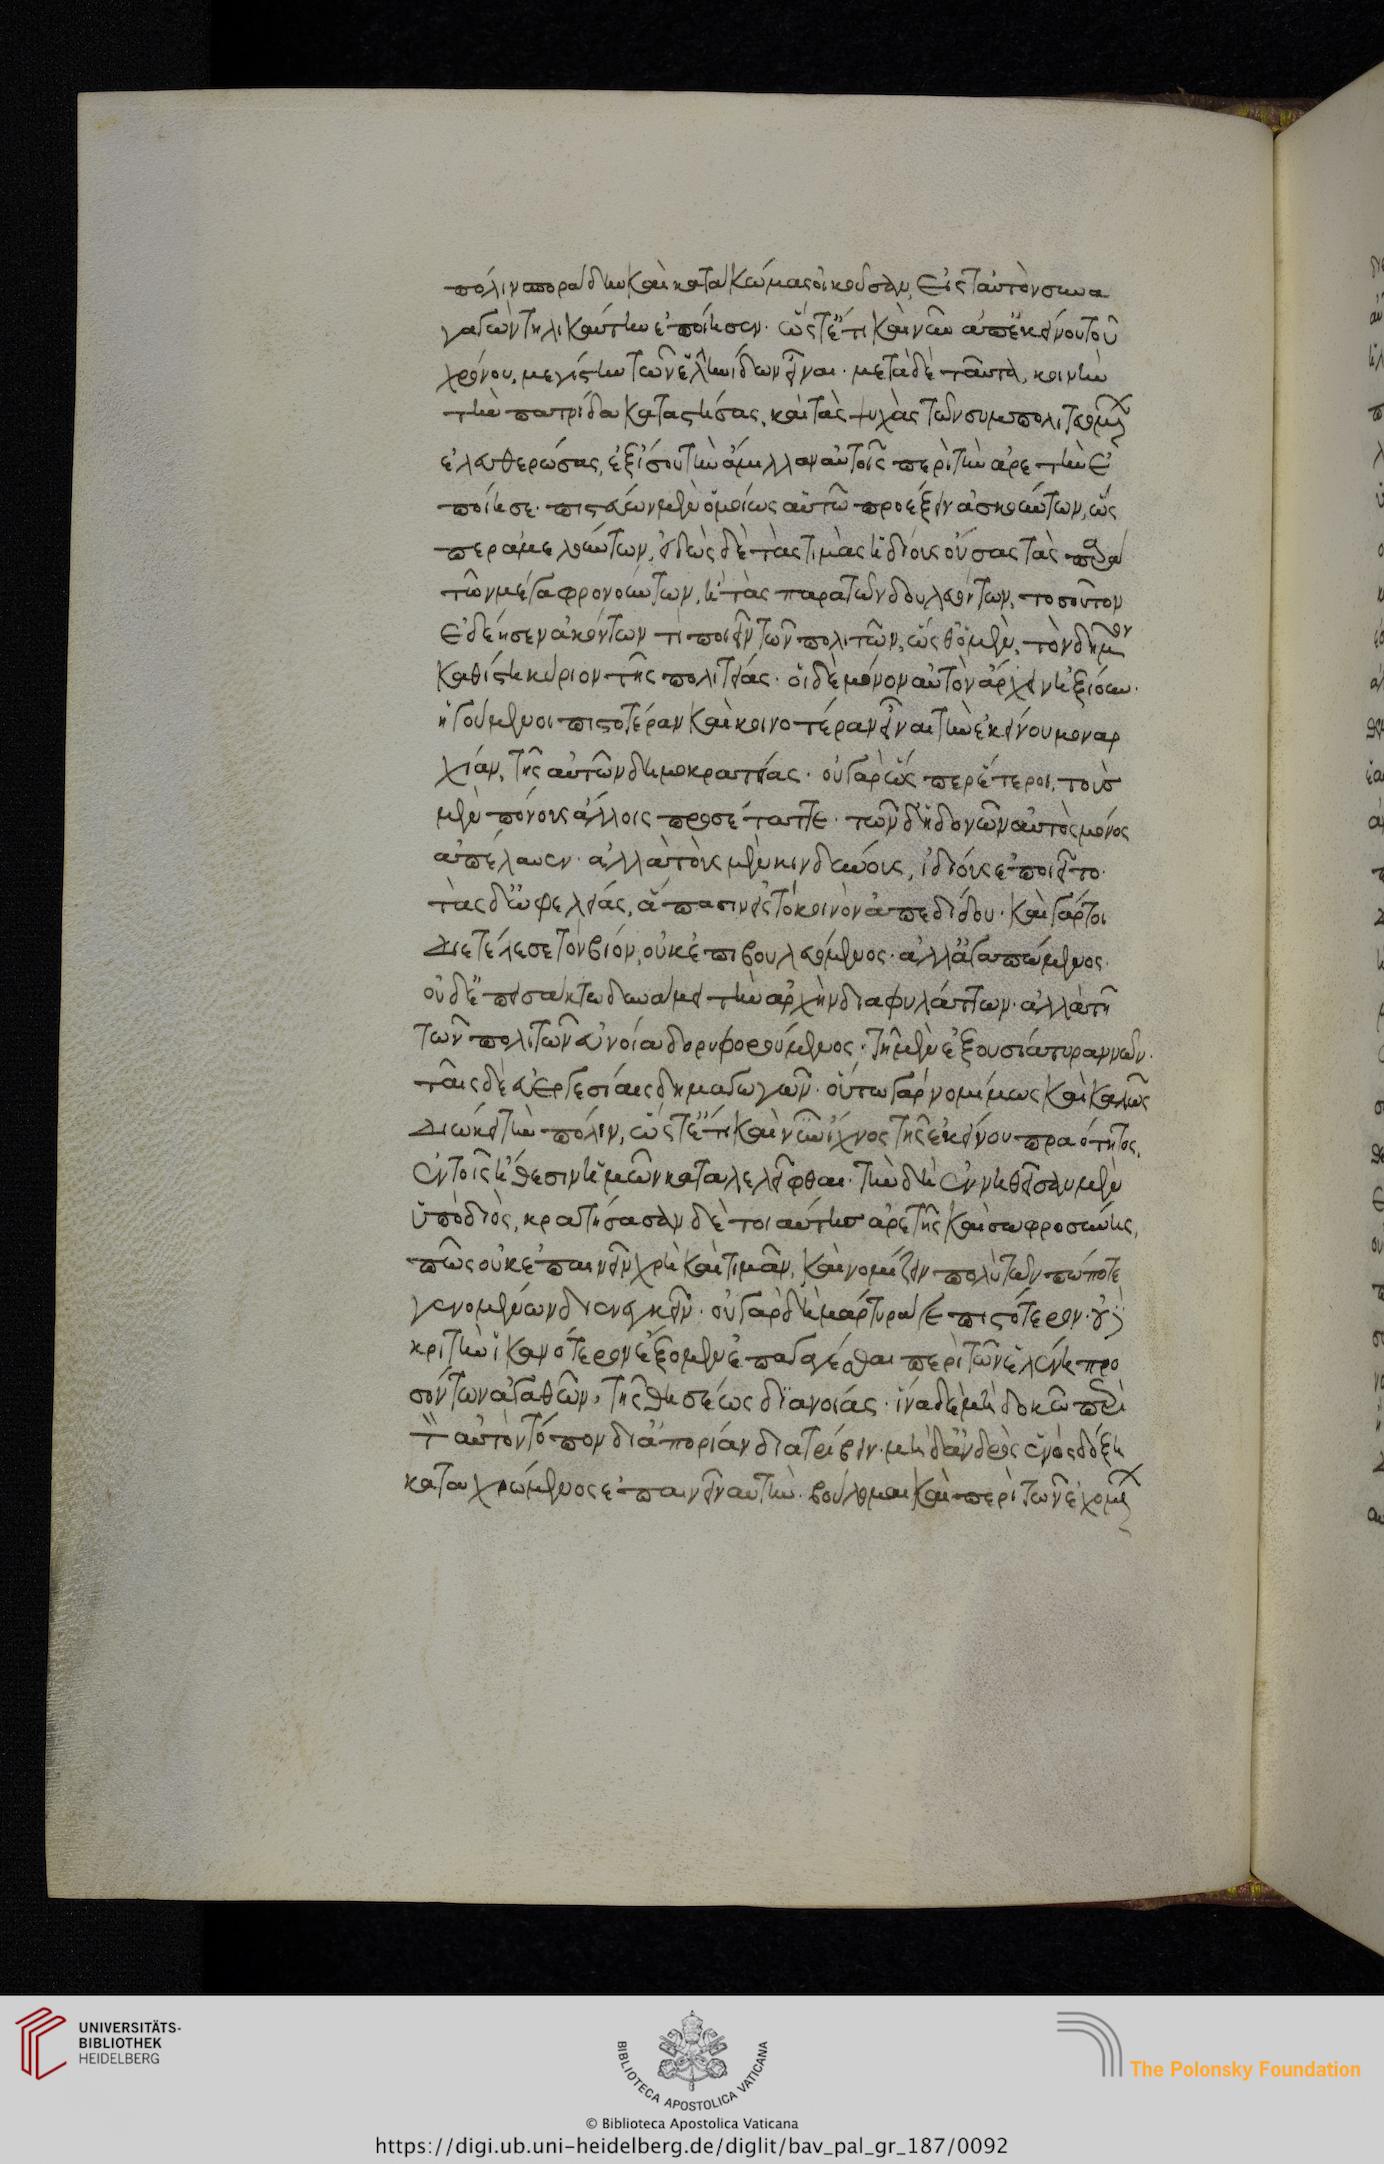 πόλιν σποράδην καὶ κατὰ κώμας οἰκοῦσαν, εἰς ταὐτὸν συνα
γαγὼν τηλικαύτην ἐποίησεν. ὥςτ' ἔτι καὶ νῦν ἀπ' ἐκείνου τοῦ
χρόνου, μεγίστην τῶν ἑλληνίδων εἶναι. μετὰ δὲ ταῦτα, κοινὴν
τὴν πατρίδα καταστήσας, καὶ τὰς ψυχὰς τῶν συμπολιτευομένων
ἐλευθερώσας, ἐξ ἴσου τὴν ἅμιλλαν αὐτοῖς περὶ τὴν ἀρετὴν ἐ
ποίησε. πιστεύων μὲν ὁμοίως αὐτῶ προέξειν ἀσκούντων, ὥς
περ ἀμελούντων, εἰδὼς δὲ τὰς τιμὰς ἡδίους οὔσας τὰς παρὰ
τῶν μέγα φρονούντων, ἢ τὰς παρὰ τῶν δουλευόντων, τοσοῦτον
ἐδέησεν ἀκόντων τὶ ποιεῖν τῶν πολιτῶν, ὥςθ' ὁ μὲν, τὸν δῆμον
καθίστη κύριον τῆς πολιτείας. οἱ δὲ μόνον αὐτὸν ἄρχειν ἠξίουν.
ἡγούμενοι πιστοτέραν καὶ κοινοτέραν εἶναι τὴν ἐκείνου μοναρ
χίαν, τῆς αὐτῶν δημοκρατίας. οὐ γὰρ ὥς περ ἕτεροι, τοὺς
μὲν πόνους ἄλλοις προσέταττε. τῶν δ' ἡδονῶν αὐτὸς μόνος
ἀπέλαυεν. ἀλλὰ τοὺς μὲν κινδύνους, ἰδίους ἐποιεῖτο.
τὰς δ' ὠφελείας, ἅπασιν εἰς τὸ κοινὸν ἀπεδίδου. καὶ γάρ τοι
διετέλεσε τὸν βίον, οὐκ ἐπιβουλευόμενος. ἀλλ' ἀγαπώμενος.
οὐδ' ἐπεισάκτω δυνάμει τὴν ἀρχὴν διαφυλάττων. ἀλλὰ τῆ
τῶν πολιτῶν εὐνοία δορυφορούμενος. τῆ μὲν ἐξουσία τυραννῶν.
ταῖς δὲ εὐεργεσίαις δημαγωγῶν. οὕτω γὰρ νομίμως καὶ καλῶς
διώκει τὴν πόλιν, ὥςτ' ἔτι καὶ νῦν ἴχνος τῆς ἐκείνου πραότητος,
ἐν τοῖς ἤθεσιν ἡμῶν καταλελεῖφθαι. τὴν δὴ γεννηθεῖσαν μὲν
ὑπὸ διὸς, κρατήσασαν δὲ τοιαύτης ἀρετῆς καὶ σωφροσύνης,
πῶς οὐκ ἐπαινεῖν χρὴ καὶ τιμᾶν, καὶ νομίζειν πολὺ τῶν πώποτε
γενομένων διενεγκεῖν. οὐ γὰρ δὴ μάρτυρά γε πιστότερον. οὐδὲ
κριτὴν ἱκανότερον ἕξομεν ἐπαγαγέσθαι περὶ τῶν ἑλένη προ
σόντων ἀγαθῶν, τῆς θησέως διανοίας. ἵνα δὲ μὴ δοκῶ περὶ
τ αὐτὸν τόπον δι' ἀπορίαν διατρίβειν. μηδ' ἀνδρὸς ἑνὸς δόξη
καταχρώμενος ἐπαινεῖν αὐτὴν. βούλομαι καὶ περὶ τῶν ἐχομένων
UNIVERSITÄTS-
BIBLIOTHEK
HEIDELBERG
BIBLIOTECA APOSTOLICA VATICANA
The Polonsky Foundation
© Biblioteca Apostolica Vaticana
https://digi.ub.uni-heidelberg.de/diglit/bav_pal_gr_187/0092